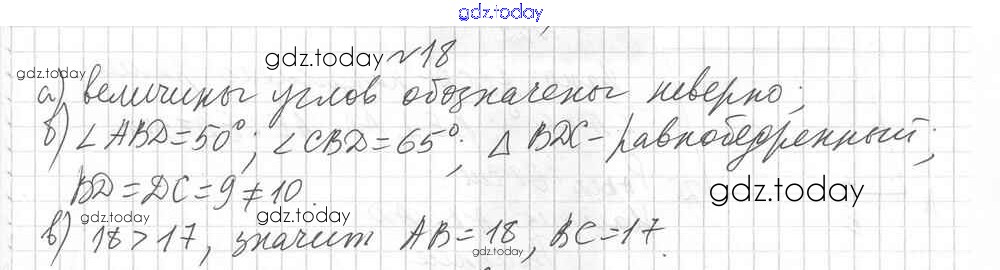 gdz.today
gdz.today №18
gdz.today
а) величины углов обозначены неверно;
б) ∠ABD=50°; ∠CBD=65°; △ BDC - равнобедренный;
BD=DC=9≠10.
gdz.today
gdz.today gdz.today
в) 18>17, значит AB=18, BC=17.
gdz.today